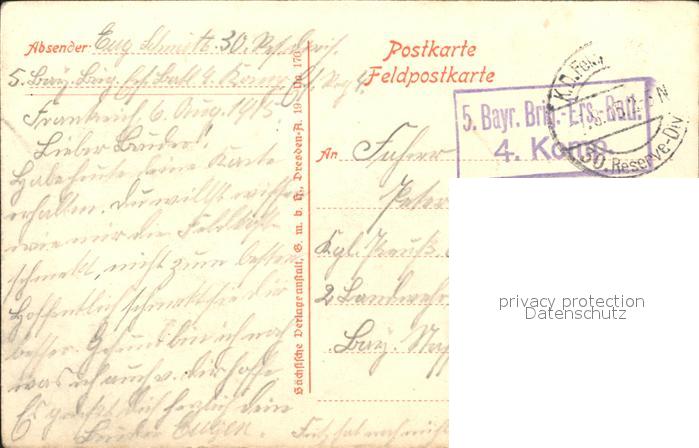 Absender Eug Schmitt. 30. Res. Divis.
5. Bay. Brig. Ers. Batl. 4. Komp.
Frankreich, 6. Aug. 1915.
Lieber Bruder!
Habe heute deine Karte
erhalten. Du willst wissen
wie mir die Feldkost
schmekt, nicht zum besten
Hoffentlich schmekt sie dir
besser. Gesund bin ich noch
was ich auch v. dir hoffe
Es grüßt dich herzlich dein
Bruder Eugen.
Sächsische Verlagsanstalt, G. m. b. H., Dresden-A. 19
Postkarte
Feldpostkarte
5. Bayr. Brig.-Ers.-Batl.
4. Komp.
K.D. Feldp
30. Reserve-Div.
An Fahrer
Peter
Kgl. Preuß
2 Landwehr
Bay.
privacy protection
Datenschutz